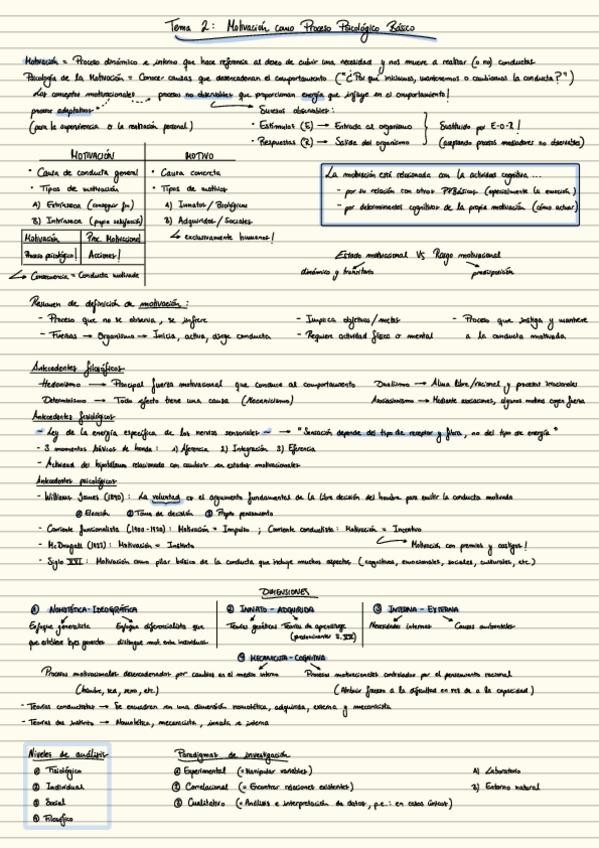 Tema 2: Motivación como Proceso Psicológico Básico
Motivación = Proceso dinámico e interno que hace referencia al deseo de cubrir una necesidad y nos mueve a realizar (o no) conductas
Psicología de la Motivación = Conocer causas que desencadenan el comportamiento ("¿Por qué iniciamos, mantenemos o cambiamos la conducta?")
Los conceptos motivacionales procesos no observables que proporcionan energía que influye en el comportamiento!
proceso adaptativo
(para la supervivencia o la realización personal)
Sucesos observables:
· Estímulos (E) → Entrada al organismo
· Respuestas (R) → Salida del organismo
Sustituido por E-O-R!
(aceptando procesos mediadores no observables)
MOTIVACIÓN
· Causa de conducta general
· Tipos de motivación
A) Extrínseca (conseguir fin)
B) Intrínseca (propia satisfacción)
MOTIVO
· Causa concreta
· Tipos de motivos
A) Innatos / Biológicos
B) Adquiridos / Sociales
↳ exclusivamente humanos!
Motivación Proc. Motivacional
Proceso psicológico! Acciones!
Consecuencia = Conducta motivada
La motivación está relacionada con la actividad cognitiva ...
- por su relación con otros PPBásicos (especialmente la emoción)
- por determinantes cognitivos de la propia motivación (cómo actuar)
Estado motivacional VS Rasgo motivacional
dinámico y transitorio predisposición
Resumen de definición de motivación:
- Proceso que no se observa, se infiere
- Fuerzas → Organismo → Inicia, activa, dirige conducta
- Implica objetivos/metas
- Requiere actividad física o mental
- Proceso que instiga y mantiene
a la conducta motivada
Antecedentes filosóficos
Hedonismo → Principal fuerza motivacional que conduce al comportamiento
Determinismo → Todo efecto tiene una causa (Mecanicismo)
Dualismo → Alma libre/racional y procesos irracionales
Asociacionismo → Mediante asociaciones, algunos motivos cogen fuerza
Antecedentes fisiológicos
- Ley de la energía específica de los nervios sensoriales - → "Sensación depende del tipo de receptor y fibra, no del tipo de energía"
- 3 momentos básicos de 1) Aferencia 2) Integración 3) Eferencia
- Actividad del hipotálamo relacionada con cambios en estados motivacionales
Antecedentes psicológicos
- William James (1890): La voluntad es el argumento fundamental de la libre decisión del hombre para emitir la conducta motivada
① Elección ② Toma de decisión ③ Propio pensamiento
- Corriente funcionalista (1900-1920): Motivación = Impulso ; Corriente conductista: Motivación = Incentivo
- McDougall: Motivación = Instinto
Motivación con premios y castigos!
- Siglo XXI: Motivación como pilar básico de la conducta que incluye muchos aspectos (cognitivos, emocionales, sociales, culturales, etc.)
DIMENSIONES
① NOMOTÉTICA-IDEOGRÁFICA
Enfoque generalista Enfoque diferencialista que
que establece leyes generales distingue mot. entre individuos
② INNATO - ADQUIRIDA
Teorías genéticas Teorías de aprendizaje
(predominantes S. XX)
③ INTERNA - EXTERNA
Necesidades internas Causas ambientales
④ MECANICISTA - COGNITIVA
Procesos motivacionales desencadenados por cambios en el medio interno
(hambre, sed, sueño, etc.)
Procesos motivacionales controlados por el pensamiento racional
(Atribuir fracaso a la dificultad en vez de a la capacidad)
- Teorías conductistas → Se encuadran en una dimensión nomotética, adquirida, externa y mecanicista
- Teorías del instinto → Nomotética, mecanicista, innata e interna
Niveles de análisis
① Fisiológico
② Individual
③ Social
④ Filosófico
Paradigmas de investigación
① Experimental (= Manipular variables)
② Correlacional (= Encontrar relaciones existentes)
③ Cualitativo (= Análisis e interpretación de datos, p.e.: en casos únicos)
A) Laboratorio
B) Entorno natural